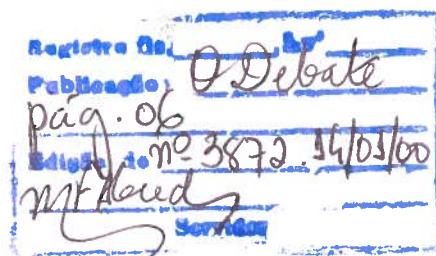 Registro No.
Publicação: O Debate
pág. 06
Edição de nº 3872. 14/01/00
Servidor